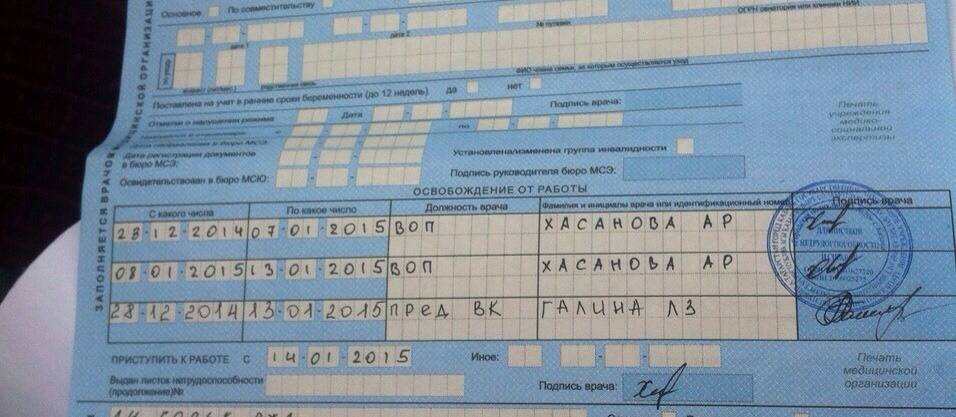 Основное По совместительству
№ путевки ОГРН санатория или клиники НИИ
дата 1 дата 2
по уходу
ФИО члена семьи, за которым осуществляется уход
Поставлена на учет в ранние сроки беременности (до 12 недель) да нет Подпись врача:
Отметки о нарушении режима Дата
Печать учреждения медико-социальной экспертизы
Дата регистрации документов в бюро МСЭ:
Установлена/изменена группа инвалидности
Освидетельствован в бюро МСЭ: Подпись руководителя бюро МСЭ:
ЗАПОЛНЯЕТСЯ ВРАЧОМ
ОСВОБОЖДЕНИЕ ОТ РАБОТЫ
С какого числа По какое число Должность врача Фамилия и инициалы врача или идентификационный номер Подпись врача
28-12-2014 07-01-2015 ВОП ХАСАНОВА АР
08-01-2015 13-01-2015 ВОП ХАСАНОВА АР
28-12-2014 13-01-2015 ПРЕД ВК ГАЛИНА ЛЗ
ПРИСТУПИТЬ К РАБОТЕ С 14-01-2015 Иное:
Выдан листок нетрудоспособности (продолжение)№
Подпись врача:
Печать медицинской организации